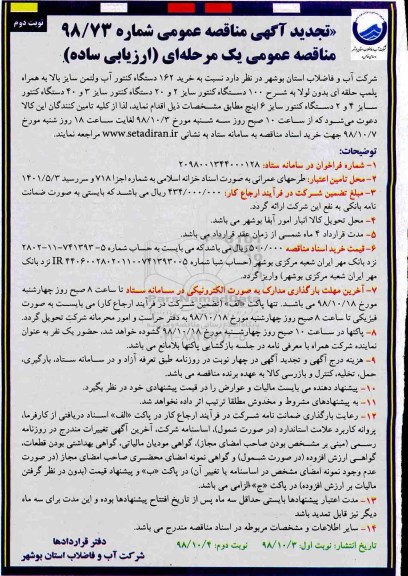 نوبت دوم
«تجدید آگهی مناقصه عمومی شماره ۹۸/۷۳
مناقصه عمومی یک مرحله‌ای (ارزیابی ساده)
شرکت آب و فاضلاب استان بوشهر در نظر دارد نسبت به خرید ۱۶۲ دستگاه کنتور آب ولتمن سایز بالا به همراه
پلمپ حلقه ای بدون لولا به شرح ۱۰۰ دستگاه کنتور سایز ۲ و ۲۰ دستگاه کنتور سایز ۳ و ۴۰ دستگاه کنتور
سایز ۴ و ۲ دستگاه کنتور سایز ۶ اینچ مطابق مشخصات ذیل اقدام نماید، لذا از کلیه تامین کنندگان این کالا
دعوت می‌شود که از ساعت ۱۰ صبح روز سه شنبه مورخ ۹۸/۱۰/۳ لغایت ساعت ۱۸ روز شنبه مورخ
۹۸/۱۰/۷ جهت خرید اسناد مناقصه به سامانه ستاد به نشانی www.setadiran.ir مراجعه نمایند.
توضیحات:
۱- شماره فراخوان در سامانه ستاد: ۲۰۹۸۰۰۱۳۴۴۰۰۰۱۲۸
۲- محل تامین اعتبار: طرحهای عمرانی به صورت اسناد خزانه اسلامی به شماره اجزا ۷۱۸ و سررسید ۱۴۰۱/۵/۳
۳- مبلغ تضمین شرکت در فرآیند ارجاع کار: ۴۳۴/۰۰۰/۰۰۰ ریال می‌باشد که بایستی به صورت ضمانت
نامه بانکی به نفع این شرکت ارائه گردد.
۴- محل تحویل کالا انبار امور آبفا بوشهر می باشد.
۵- مدت قرارداد ۴ ماه شمسی از زمان عقد قرارداد می باشد.
۶- قیمت خرید اسناد مناقصه ۵۰۰/۰۰۰ ریال می‌باشد که می بایست به حساب شماره ۵-۷۴۱۳۹۳-۱۱-۲۸۰۲
نزد بانک مهر ایران شعبه مرکزی بوشهر (حساب شبا شماره IR ۴۴۰۶۰۰۲۸۰۲۰۱۱۰۰۷۴۱۳۹۳۰۰۵ نزد بانک
مهر ایران شعبه مرکزی بوشهر) واریز گردد.
۷- آخرین مهلت بارگذاری مدارک به صورت الکترونیکی در سامانه ستاد تا ساعت ۸ صبح روز چهارشنبه
مورخ ۹۸/۱۰/۱۸ می باشد. تنها پاکت الف (تضمین شرکت در فرآیند ارجاع کار) می بایست به صورت
فیزیکی تا ساعت ۸ صبح روز چهارشنبه مورخ ۹۸/۱۰/۱۸ به دفتر حراست و امور محرمانه شرکت تحویل گردد.
۸- پاکتها در ساعت ۱۰ صبح روز چهارشنبه مورخ ۹۸/۱۰/۱۸ گشوده خواهد شد، حضور یک نفر به عنوان
نماینده شرکت همراه با معرفی نامه در جلسه بازگشایی پاکتها بلامانع می باشد.
۹- هزینه درج آگهی و تجدید آگهی در چهار نوبت در روزنامه طبق تعرفه آزاد و در سامانه ستاد، بارگیری،
حمل، تخلیه، کنترل و بازرسی کالا به عهده برنده مناقصه می باشد.
۱۰- پیشنهاد دهنده می بایست مالیات و عوارض را در قیمت پیشنهادی خود در نظر بگیرد.
۱۱- به پیشنهادهای مشروط و مخدوش مطلقا ترتیب اثر داده نخواهد شد.
۱۲- رعایت بارگذاری ضمانت نامه شرکت در فرآیند ارجاع کار در پاکت «الف» اسناد دریافتی از کارفرما،
پروانه کاربرد علامت استاندارد (در صورت شمول)، اساسنامه شرکت، آخرین آگهی تغییرات مندرج در روزنامه
رسمی (مبنی بر مشخص بودن صاحب امضای مجاز)، گواهی مودیان مالیاتی، گواهی بهداشتی بودن قطعات،
گواهی ارزش افزوده (در صورت شمول) و گواهی نمونه امضای محضری صاحب امضای مجاز (در صورت
عدم وجود نمونه امضای مشخص در اساسنامه یا تغییر آن) در پاکت «ب» و پیشنهاد قیمت (بدون در نظر گرفتن
مالیات بر ارزش افزوده) در پاکت «ج» الزامی می باشد.
۱۳- مدت اعتبار پیشنهادها بایستی حداقل سه ماه پس از تاریخ افتتاح پیشنهادها بوده و این مدت برای سه ماه
دیگر نیز قابل تمدید باشد
۱۴- سایر اطلاعات و مشخصات مربوطه در اسناد مناقصه مندرج می باشد.
تاریخ انتشار: نوبت اول: ۹۸/۱۰/۳ نوبت دوم: ۹۸/۱۰/۴
دفتر قراردادها
شرکت آب و فاضلاب استان بوشهر